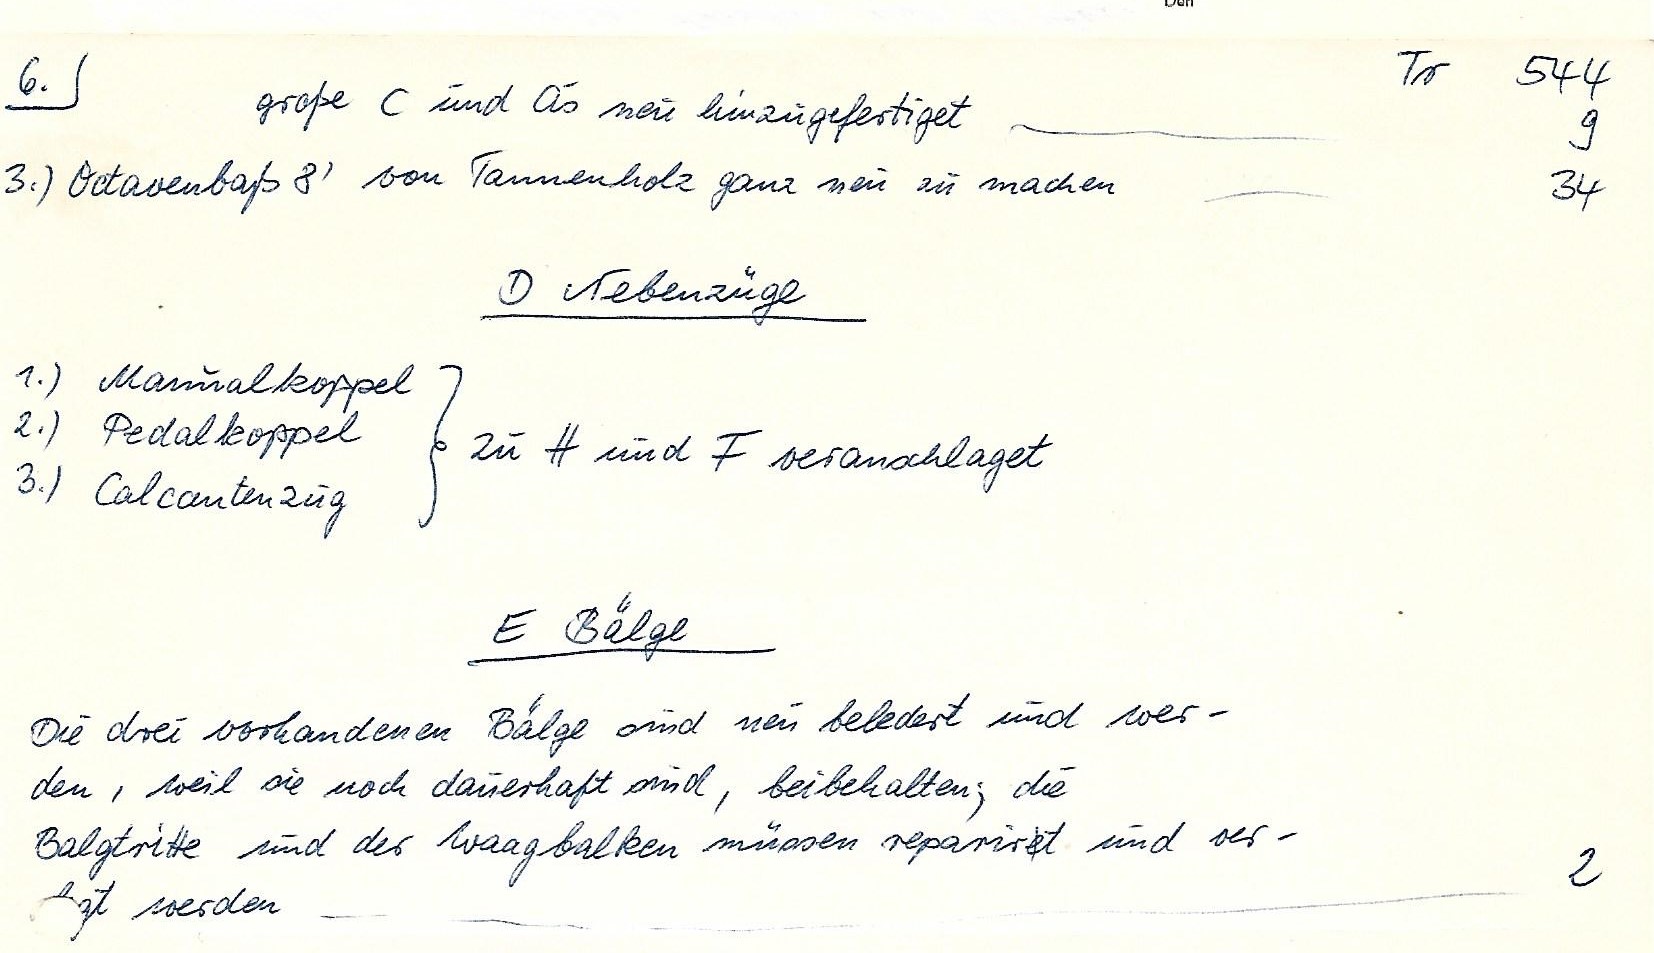 Den
6.) Tr 544
große C und Cis neu hinzugefertiget 9
3.) Octavenbaß 8' von Tannenholz ganz neu zu machen 34
D Nebenzüge
1.) Manualkoppel
2.) Pedalkoppel
3.) Calcantenzug
zu H und F veranschlaget
E Bälge
Die drei vorhandenen Bälge sind neu beledert und wer-
den, weil sie noch dauerhaft sind, beibehalten; die
Balgtritte und der Waagbalken müssen reparirt und ver-
werden 2